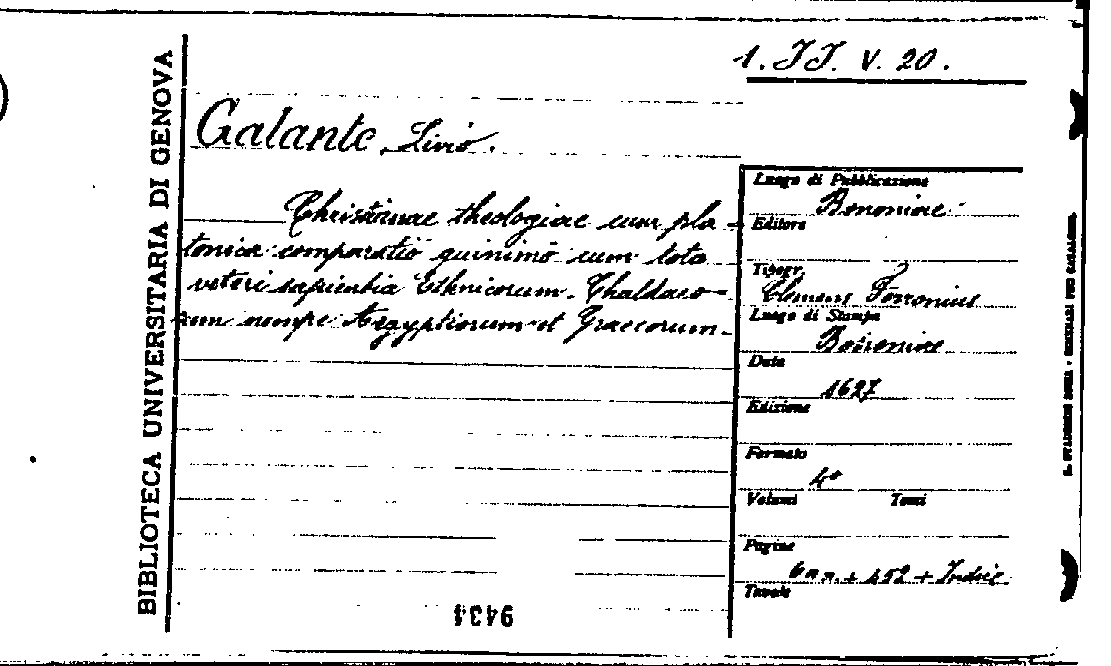 1. JJ. V. 20.
BIBLIOTECA UNIVERSITARIA DI GENOVA
Galante, Livio.
Christianae theologiae cum pla-
tonica comparatio quinimo cum tota
veteri sapientia Ethnicorum. Chaldaeo-
rum nempe Aegyptiorum et Graecorum.
Luogo di Pubblicazione
Bononiae
Editore
Tipogr.
Clemens Ferronius
Luogo di Stampa
Bononiae
Data
1627
Edizione
Formato
4°
Volumi Tomi
Pagine
6 nn. + 452 + Indic
Tavole
9434